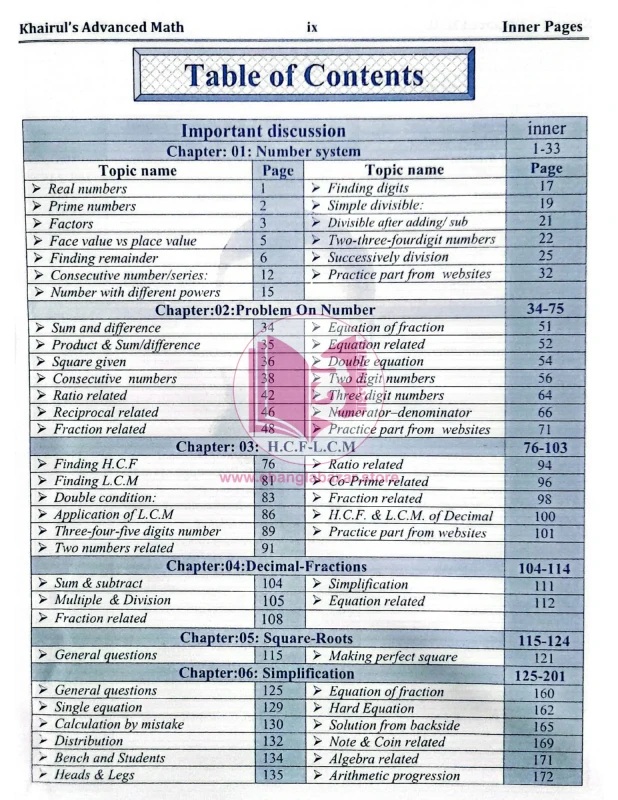 Khairul's Advanced Math ix Inner Pages
Table of Contents
Important discussion inner
Chapter: 01: Number system 1-33
Topic name Page Topic name Page
➢ Real numbers 1 ➢ Finding digits 17
➢ Prime numbers 2 ➢ Simple divisible: 19
➢ Factors 3 ➢ Divisible after adding/ sub 21
➢ Face value vs place value 5 ➢ Two-three-fourdigit numbers 22
➢ Finding remainder 6 ➢ Successively division 25
➢ Consecutive number/series: 12 ➢ Practice part from websites 32
➢ Number with different powers 15
Chapter:02:Problem On Number 34-75
➢ Sum and difference 34 ➢ Equation of fraction 51
➢ Product & Sum/difference 35 ➢ Equation related 52
➢ Square given 36 ➢ Double equation 54
➢ Consecutive numbers 38 ➢ Two digit numbers 56
➢ Ratio related 42 ➢ Three digit numbers 64
➢ Reciprocal related 46 ➢ Numerator–denominator 66
➢ Fraction related 48 ➢ Practice part from websites 71
Chapter: 03: H.C.F-L.C.M 76-103
➢ Finding H.C.F 76 ➢ Ratio related 94
www.ebanglabazar.store
➢ Finding L.C.M 81 ➢ Co-Prime related 96
➢ Double condition: 83 ➢ Fraction related 98
➢ Application of L.C.M 86 ➢ H.C.F. & L.C.M. of Decimal 100
➢ Three-four-five digits number 89 ➢ Practice part from websites 101
➢ Two numbers related 91
Chapter:04:Decimal-Fractions 104-114
➢ Sum & subtract 104 ➢ Simplification 111
➢ Multiple & Division 105 ➢ Equation related 112
➢ Fraction related 108
Chapter:05: Square-Roots 115-124
➢ General questions 115 ➢ Making perfect square 121
Chapter:06: Simplification 125-201
➢ General questions 125 ➢ Equation of fraction 160
➢ Single equation 129 ➢ Hard Equation 162
➢ Calculation by mistake 130 ➢ Solution from backside 165
➢ Distribution 132 ➢ Note & Coin related 169
➢ Bench and Students 134 ➢ Algebra related 171
➢ Heads & Legs 135 ➢ Arithmetic progression 172